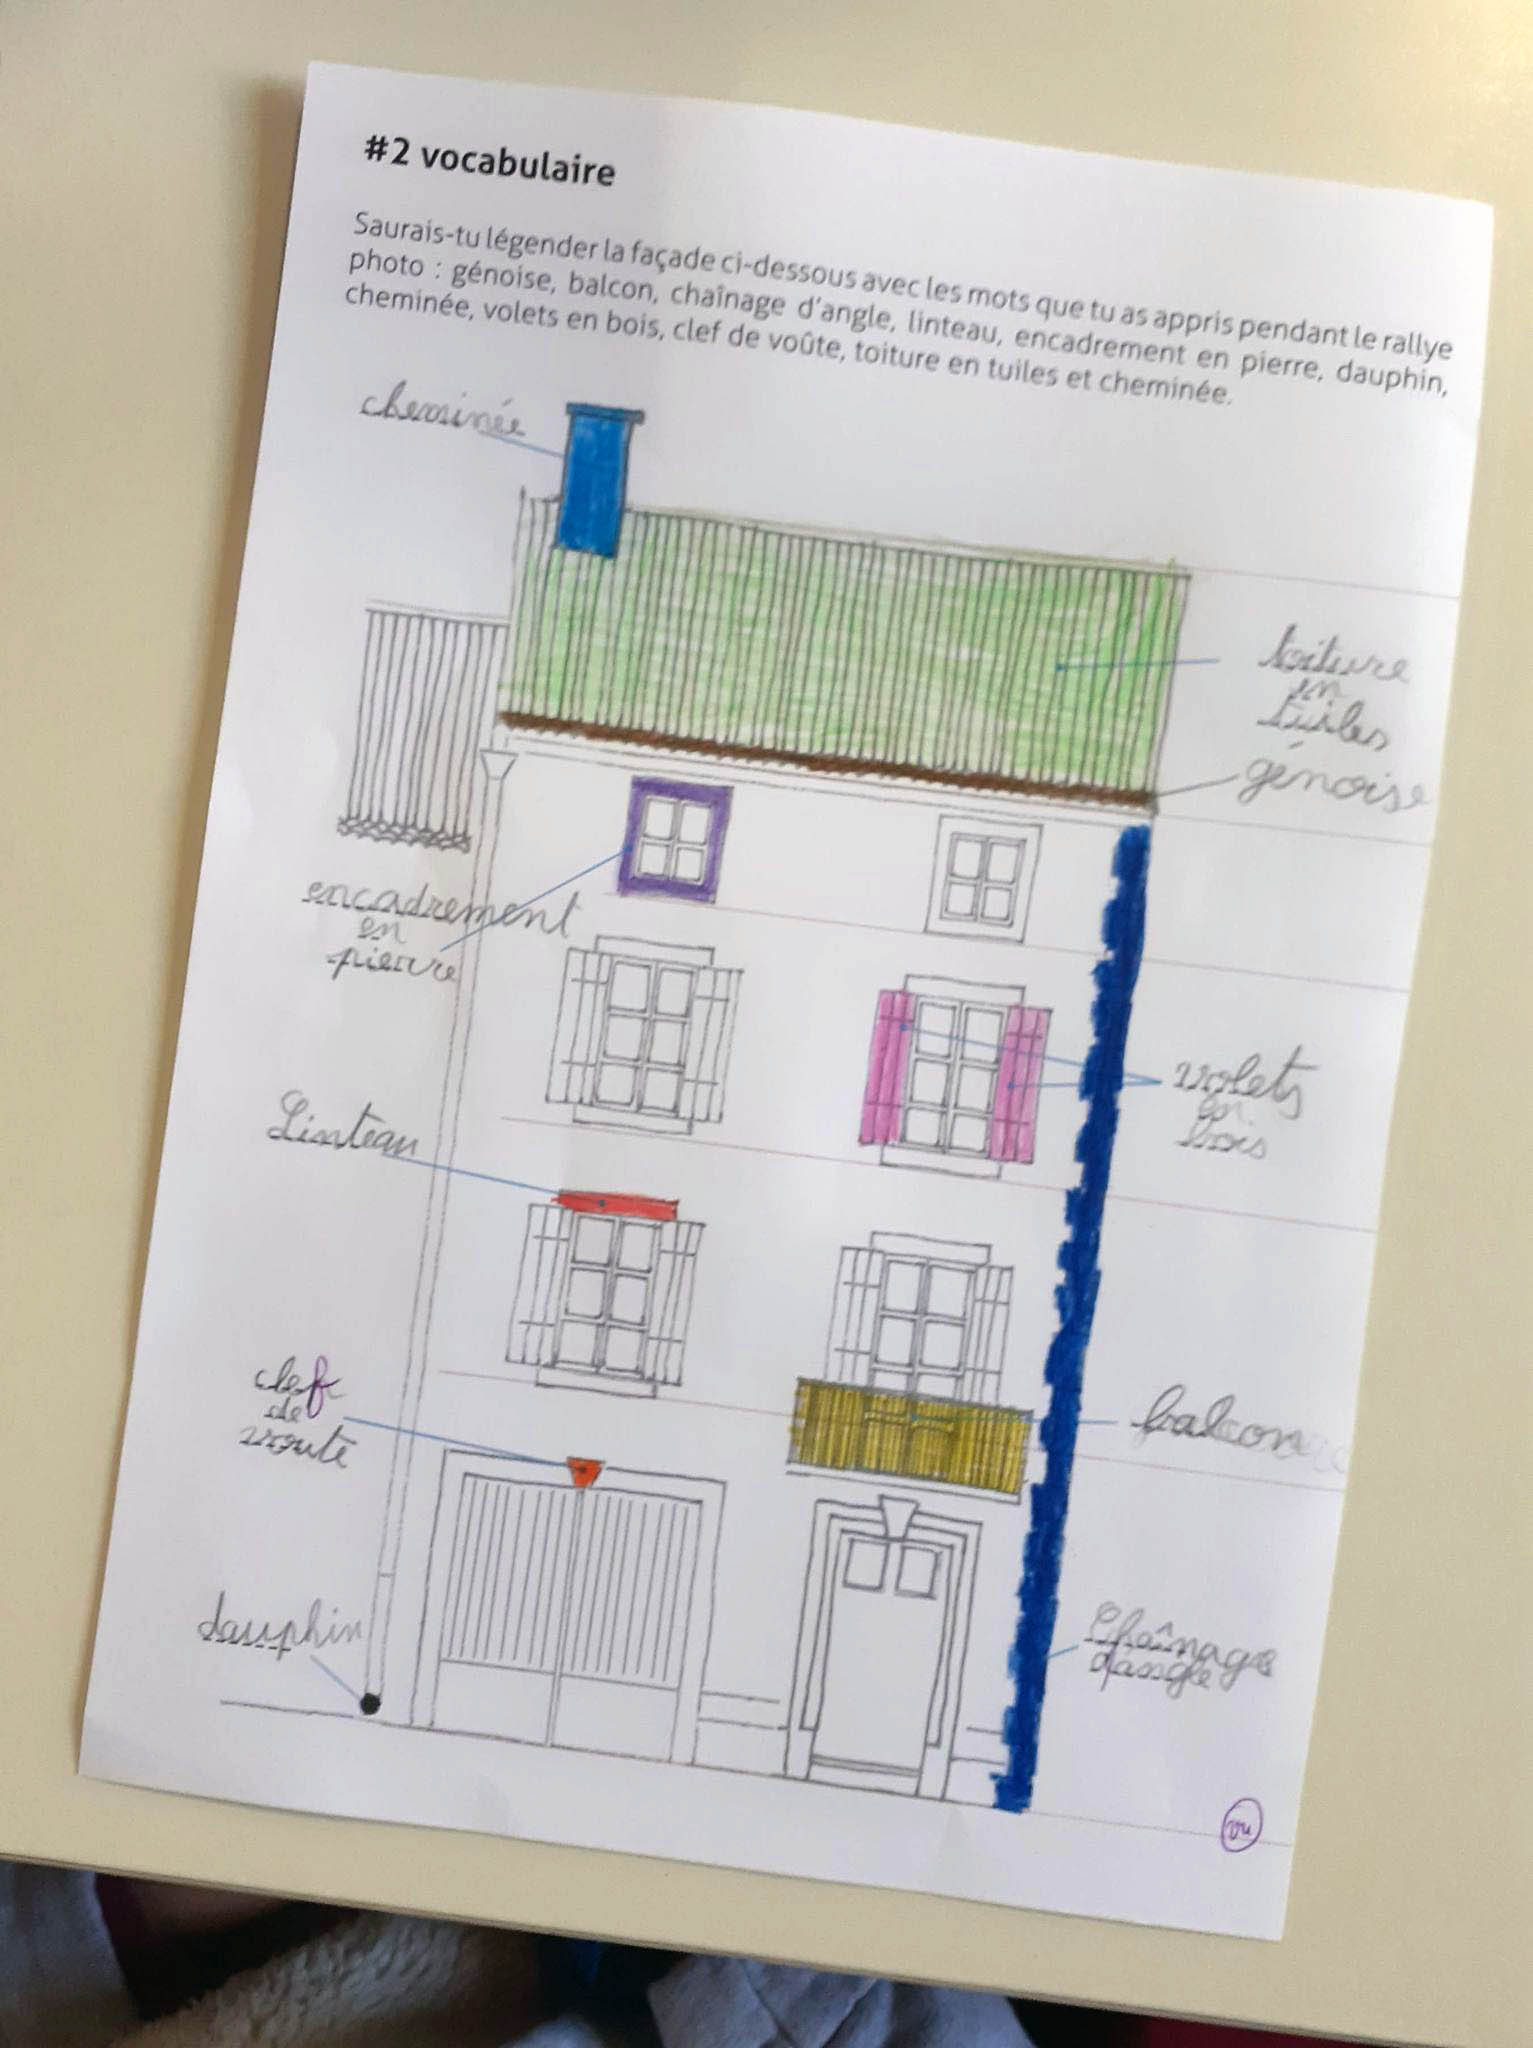 #2 vocabulaire
Saurais-tu légender la façade ci-dessous avec les mots que tu as appris pendant le rallye
photo : génoise, balcon, chaînage d'angle, linteau, encadrement en pierre, dauphin,
cheminée, volets en bois, clef de voûte, toiture en tuiles et cheminée.
cheminée
toiture
en
tuiles
génoise
encadrement
en
pierre
volets
en
bois
Linteau
clef
de
voute
balcon
dauphin
Chaînage
d'angle
vu